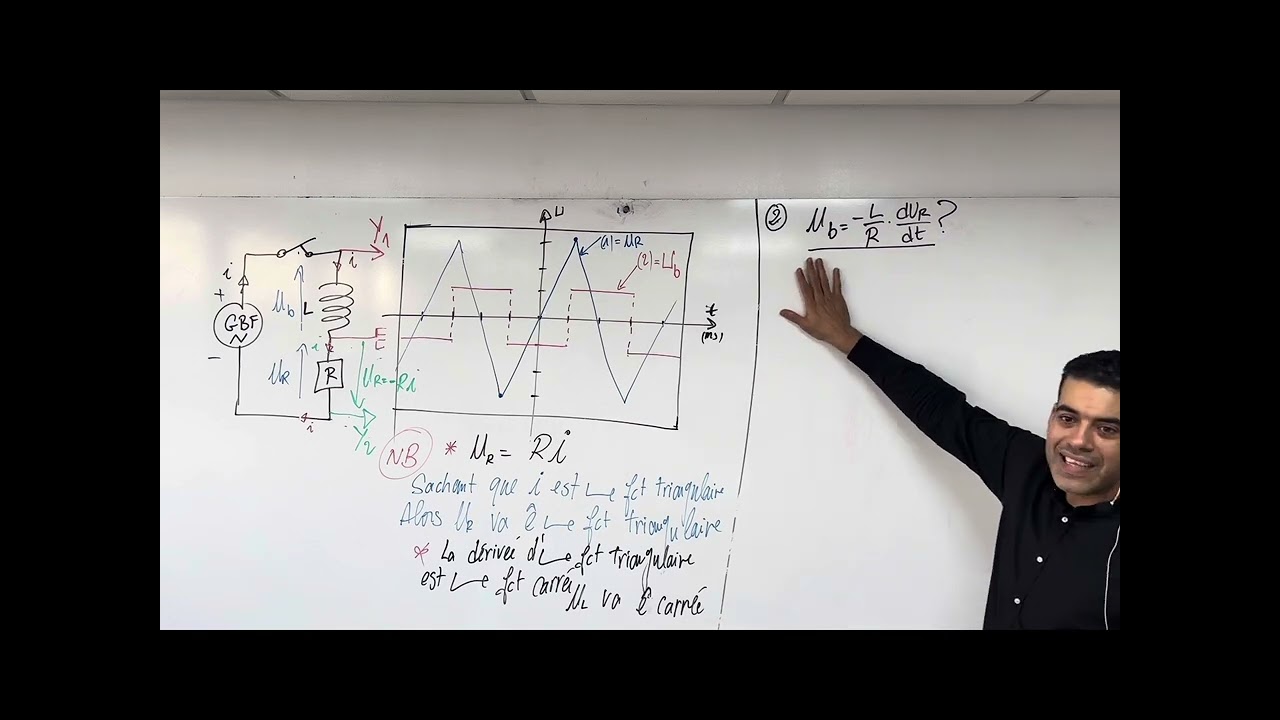 Y1
i
i
+
GBF
~
-
Ub
L
i
E
UR
R
UR=-Ri
i
Y2
U
(1)=UR
(2)=Ub
t
(ms)
NB
* UR = Ri
Sachant que i est une fct triangulaire
Alors UR va ê une fct triangulaire
* La dérivée d'une fct triangulaire
est une fct carrée
UL va ê carrée
② Ub = -L/R . dUR/dt ?